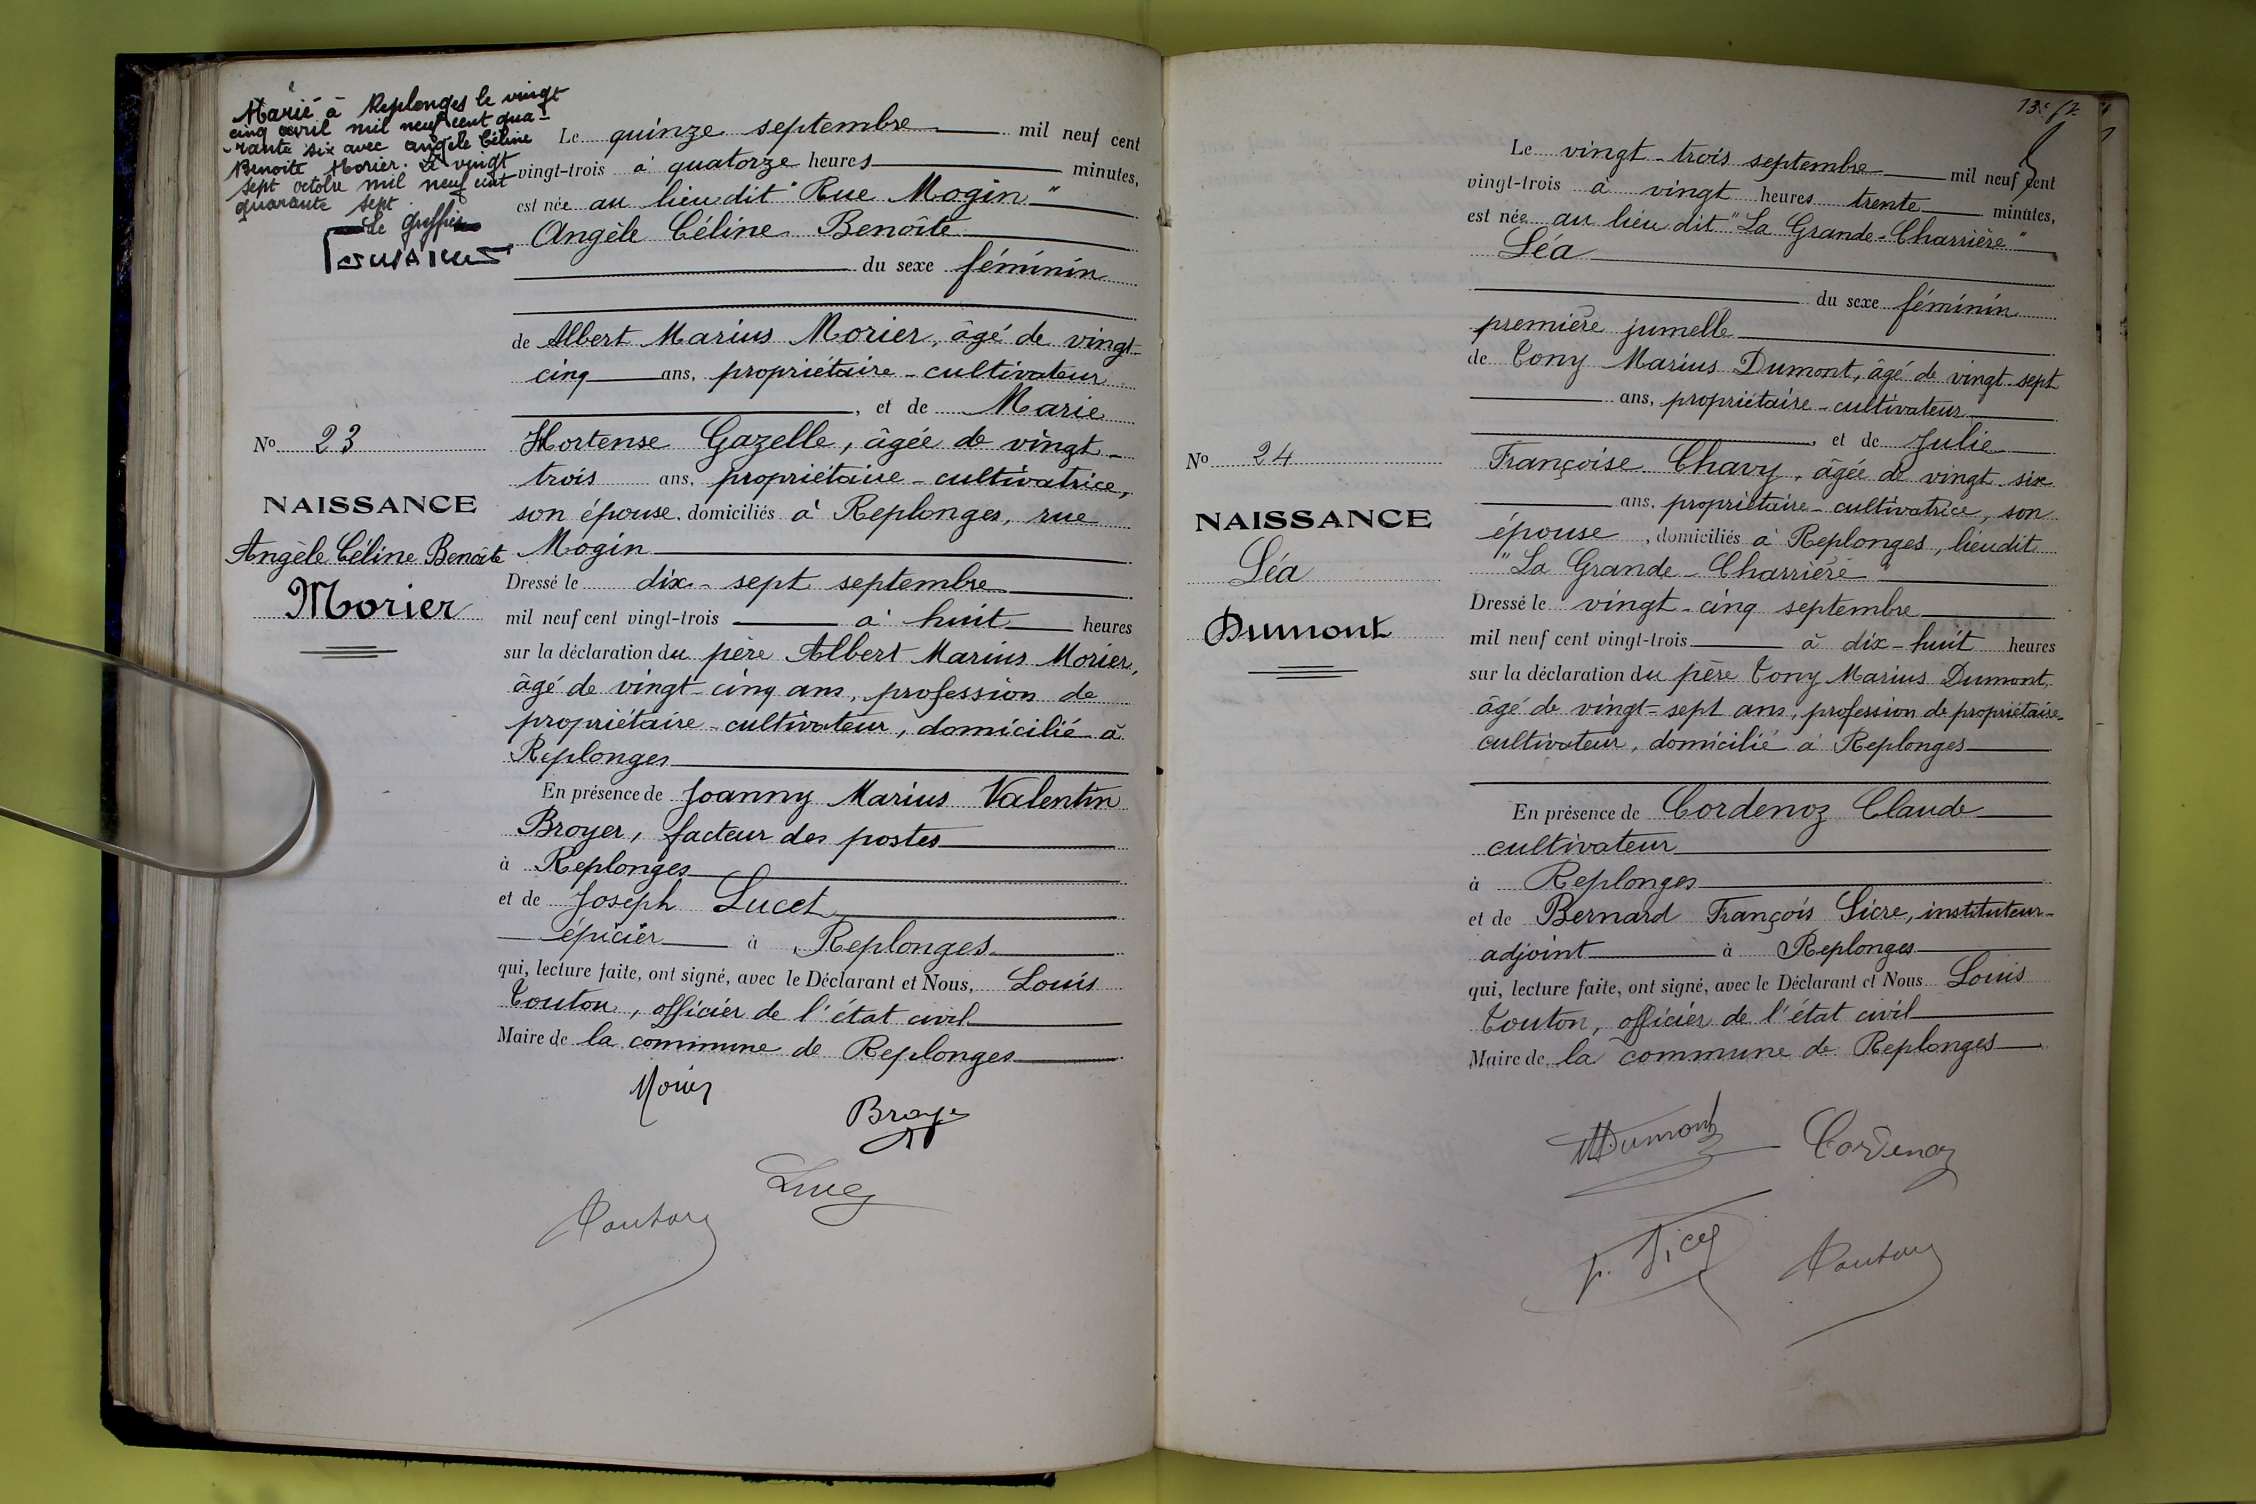 Marié à Replonges le vingt
cinq avril mil neuf cent qua-
rante six avec Angèle Céline
Benoite Morier. Le vingt
sept octobre mil neuf cent
quarante sept.
Le greffier
Le quinze septembre mil neuf cent
vingt-trois à quatorze heures minutes,
est née au lieu dit "Rue Mogin"
Angèle Céline Benoîte
du sexe féminin
de Albert Marius Morier, âgé de vingt-
cinq ans, propriétaire-cultivateur
, et de Marie
Hortense Gazelle, âgée de vingt-
trois ans, propriétaire-cultivatrice,
son épouse, domiciliés à Replonges, rue
Mogin
Dressé le dix-sept septembre
mil neuf cent vingt-trois à huit heures
sur la déclaration du père Albert Marius Morier,
âgé de vingt-cinq ans, profession de
propriétaire-cultivateur, domicilié à
Replonges
En présence de Joanny Marius Valentin
Broyer, facteur des postes
à Replonges
et de Joseph Lucet
épicier à Replonges
qui, lecture faite, ont signé, avec le Déclarant et Nous, Louis
Touton, officier de l'état civil
Maire de la commune de Replonges
Morier
Broyer
Lucet
Touton
No 23
NAISSANCE
Angèle Céline Benoîte
Morier
13e f.
Le vingt-trois septembre mil neuf cent
vingt-trois à vingt heures trente minutes,
est née au lieu dit "La Grande-Charrière"
Léa
du sexe féminin
première jumelle
de Tony Marius Dumont, âgé de vingt-sept
ans, propriétaire-cultivateur
, et de Julie
Françoise Chavy, âgée de vingt-six
ans, propriétaire-cultivatrice, son
épouse, domiciliés à Replonges, lieudit
"La Grande-Charrière"
Dressé le vingt-cinq septembre
mil neuf cent vingt-trois à dix-huit heures
sur la déclaration du père Tony Marius Dumont,
âgé de vingt-sept ans, profession de propriétaire-
cultivateur, domicilié à Replonges
En présence de Cordenoz Claude
cultivateur
à Replonges
et de Bernard François Sicre, instituteur-
adjoint à Replonges
qui, lecture faite, ont signé, avec le Déclarant et Nous Louis
Touton, officier de l'état civil
Maire de la commune de Replonges
Dumont Cordenoz
F. Sicre Touton
No 24
NAISSANCE
Léa
Dumont